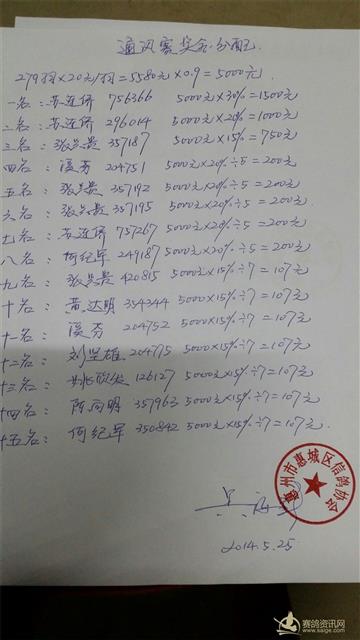 通讯赛奖金分配
279羽×20元/羽=5580元×0.9=5000元
一名: 苏连侨 756366 5000元×30%=1500元
二名: 苏连侨 296014 5000元×20%=1000元
三名: 张 357187 5000元×15%=750元
四名: 204751 5000元×20%÷5=200元
五名: 张 357192 5000元×20%÷5=200元
六名: 张 357195 5000元×20%÷5=200元
七名: 苏连侨 757267 5000元×20%÷5=200元
八名: 何纪军 249187 5000元×20%÷5=200元
九名: 张 420815 5000元×15%÷7=107元
十名: 黄达明 354344 5000元×15%÷7=107元
十一名: 204752 5000×15%÷7=107元
十二名: 刘坚雄 204775 5000×15%÷7=107元
十三名: 126127 5000元×15%÷7=107元
十四名: 陈向明 357963 5000元×15%÷7=107元
十五名: 何纪军 350842 5000元×15%÷7=107元
惠州市惠城区信鸽协会
2014.5.25
赛鸽资讯网
www.saige.com